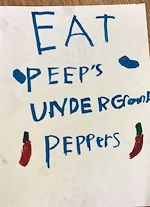 EAT
PEEP's
UNDERGrounD
PEPPers